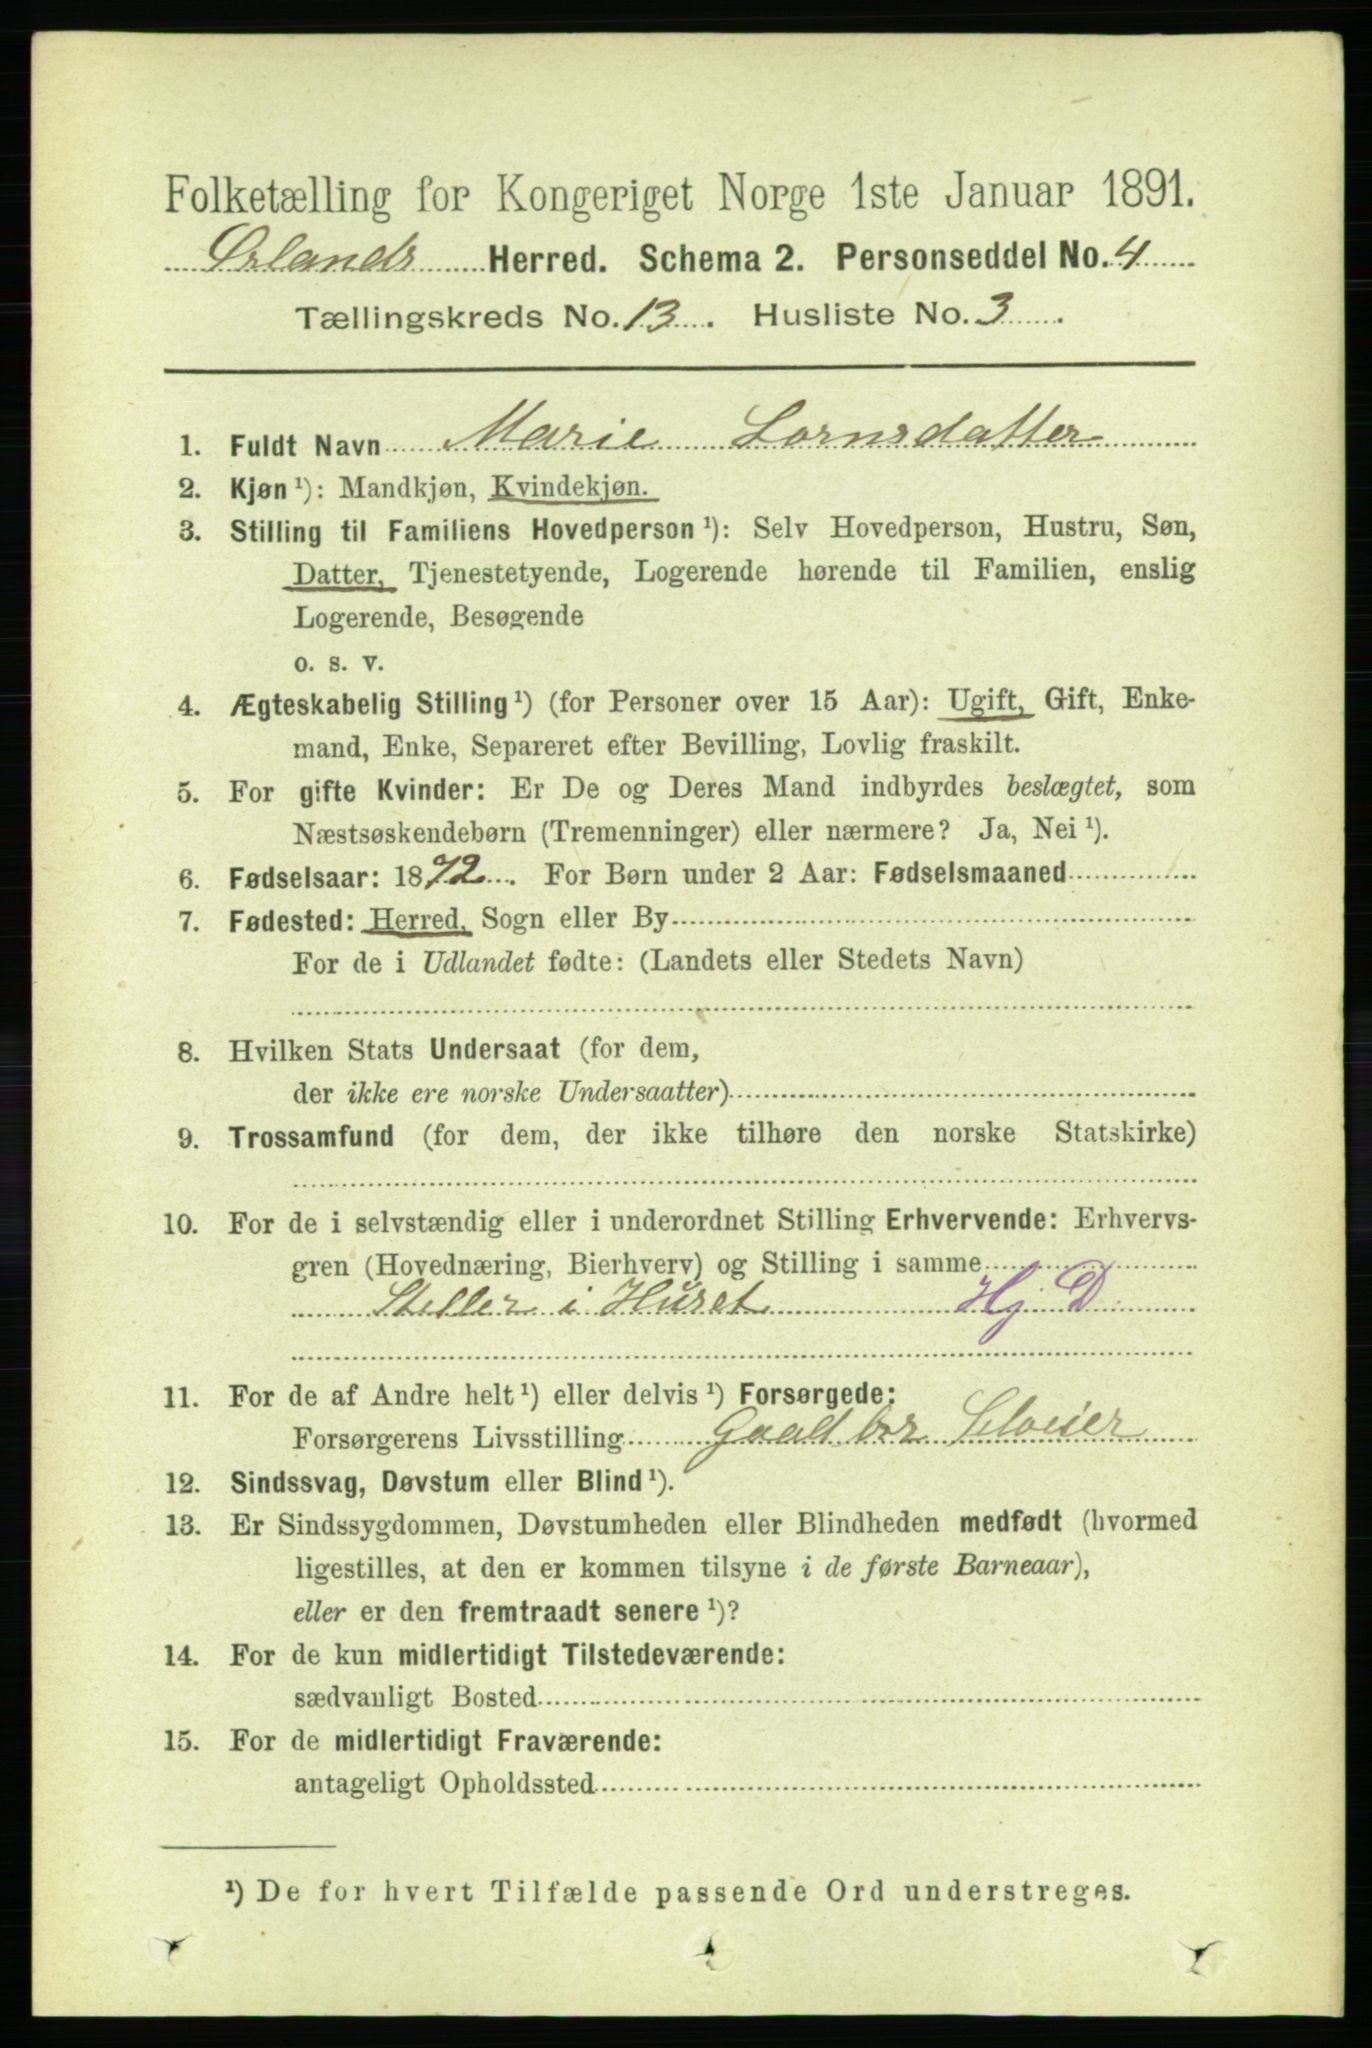 Folketælling for Kongeriget Norge 1ste Januar 1891.
Ørlands Herred. Schema 2. Personseddel No. 4
Tællingskreds No. 13. Husliste No. 3.
1. Fuldt Navn Marie Lornsdatter
2. Kjøn ¹): Mandkjøn, Kvindekjøn.
3. Stilling til Familiens Hovedperson ¹): Selv Hovedperson, Hustru, Søn,
Datter, Tjenestetyende, Logerende hørende til Familien, enslig
Logerende, Besøgende
o. s. v.
4. Ægteskabelig Stilling ¹) (for Personer over 15 Aar): Ugift, Gift, Enke-
mand, Enke, Separeret efter Bevilling, Lovlig fraskilt.
5. For gifte Kvinder: Er De og Deres Mand indbyrdes beslægtet, som
Næstsøskendebørn (Tremenninger) eller nærmere? Ja, Nei ¹).
6. Fødselsaar: 1872. For Børn under 2 Aar: Fødselsmaaned
7. Fødested: Herred, Sogn eller By
For de i Udlandet fødte: (Landets eller Stedets Navn)
8. Hvilken Stats Undersaat (for dem,
der ikke ere norske Undersaatter)
9. Trossamfund (for dem, der ikke tilhøre den norske Statskirke)
10. For de i selvstændig eller i underordnet Stilling Erhvervende: Erhvervs-
gren (Hovednæring, Bierhverv) og Stilling i samme
Steller i Huset Hj. D
11. For de af Andre helt ¹) eller delvis ¹) Forsørgede:
Forsørgerens Livsstilling Gaardbr Seloeier
12. Sindssvag, Døvstum eller Blind ¹).
13. Er Sindssygdommen, Døvstumheden eller Blindheden medfødt (hvormed
ligestilles, at den er kommen tilsyne i de første Barneaar),
eller er den fremtraadt senere ¹)?
14. For de kun midlertidigt Tilstedeværende:
sædvanligt Bosted
15. For de midlertidigt Fraværende:
antageligt Opholdssted
¹) De for hvert Tilfælde passende Ord understreges.